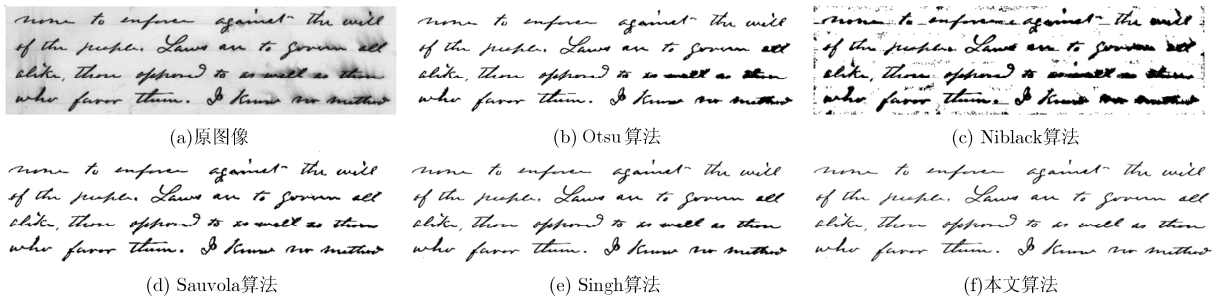 none to enforce against the will
of the people. Laws are to govern all
alike, those opposed to as well as those
who favor them. I know no method
(a)原图像
none to enforce against the will
of the people. Laws are to govern all
alike, those opposed to as well as those
who favor them. I know no method
(b) Otsu算法
none to enforce against the will
of the people. Laws are to govern all
alike, those opposed to as well as those
who favor them. I know no method
(c) Niblack算法
none to enforce against the will
of the people. Laws are to govern all
alike, those opposed to as well as those
who favor them. I know no method
(d) Sauvola算法
none to enforce against the will
of the people. Laws are to govern all
alike, those opposed to as well as those
who favor them. I know no method
(e) Singh算法
none to enforce against the will
of the people. Laws are to govern all
alike, those opposed to as well as those
who favor them. I know no method
(f)本文算法